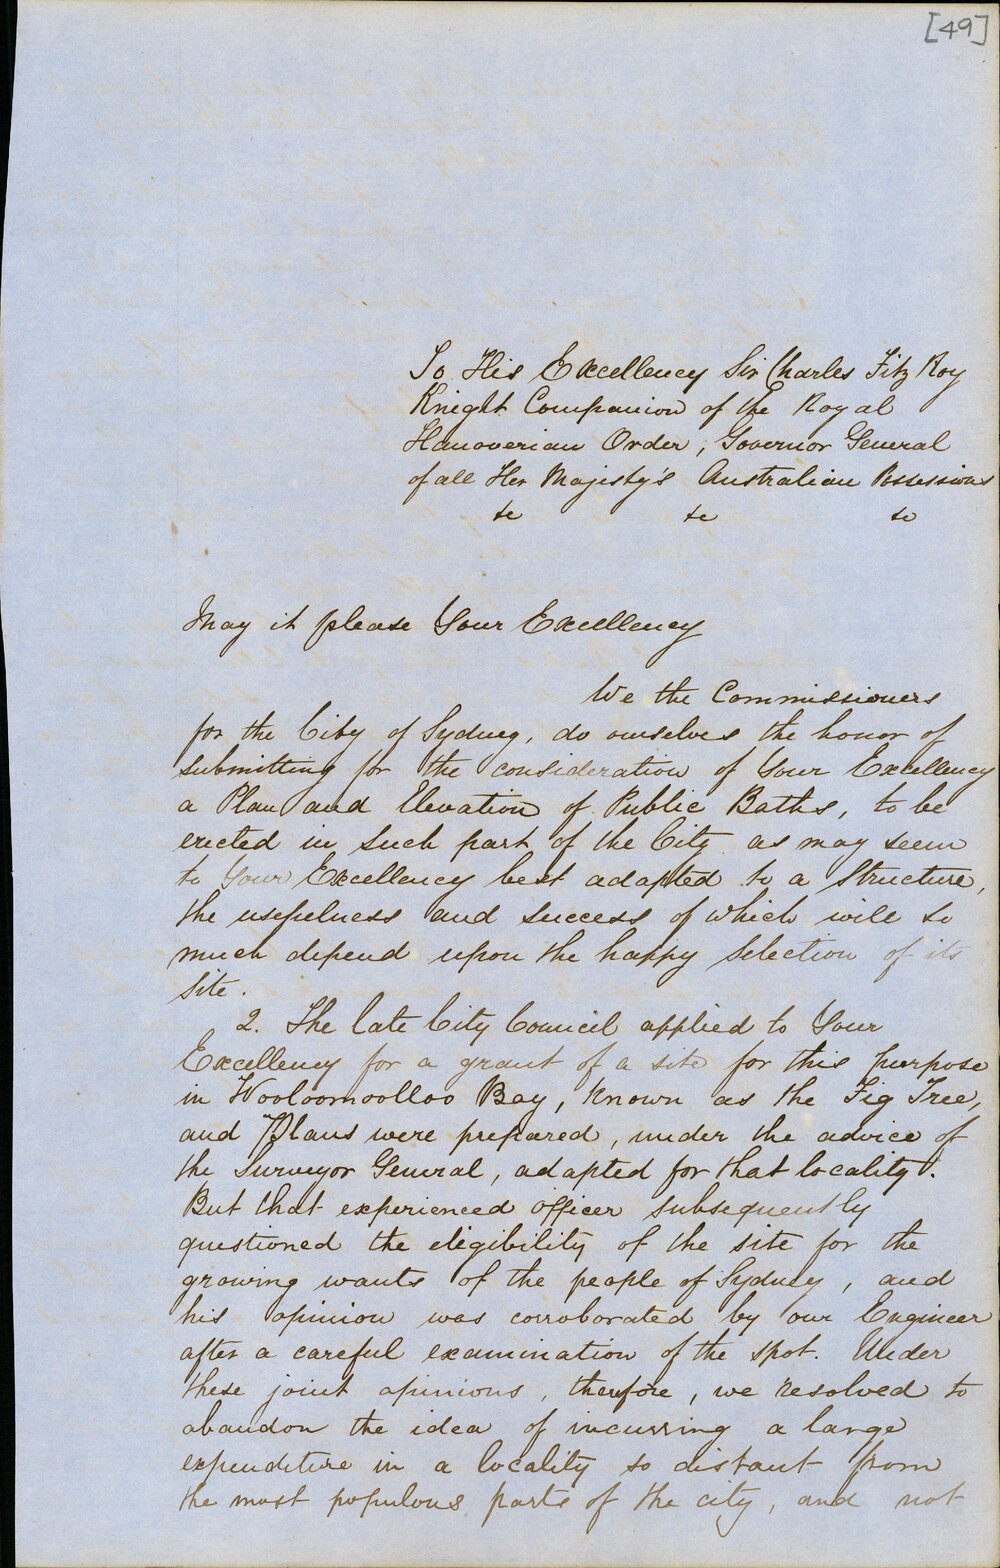 [49]
To His Excellency Sir Charles Fitz Roy
Knight Companion of the Royal
Hanoverian Order, Governor General
of all Her Majesty's Australian Possessions
&c &c &c
May it please Your Excellency
We the Commissioners
for the City of Sydney, do ourselves the honor of
submitting for the consideration of Your Excellency
a Plan and Elevation of Public Baths, to be
erected in such part of the City as may seem
to Your Excellency best adapted to a Structure,
the usefulness and success of which will so
much depend upon the happy selection of its
site.
2. The late City Council applied to Your
Excellency for a grant of a site for this purpose
in Wooloomoolloo Bay, known as the Fig Tree,
and Plans were prepared, under the advice of
the Surveyor General, adapted for that locality.
But that experienced officer subsequently
questioned the eligibility of the site for the
growing wants of the people of Sydney, and
his opinion was corroborated by our Engineer
after a careful examination of the spot. Under
these joint opinions, therefore, we resolved to
abandon the idea of incurring a large
expenditure in a locality so distant from
the most populous parts of the city, and not